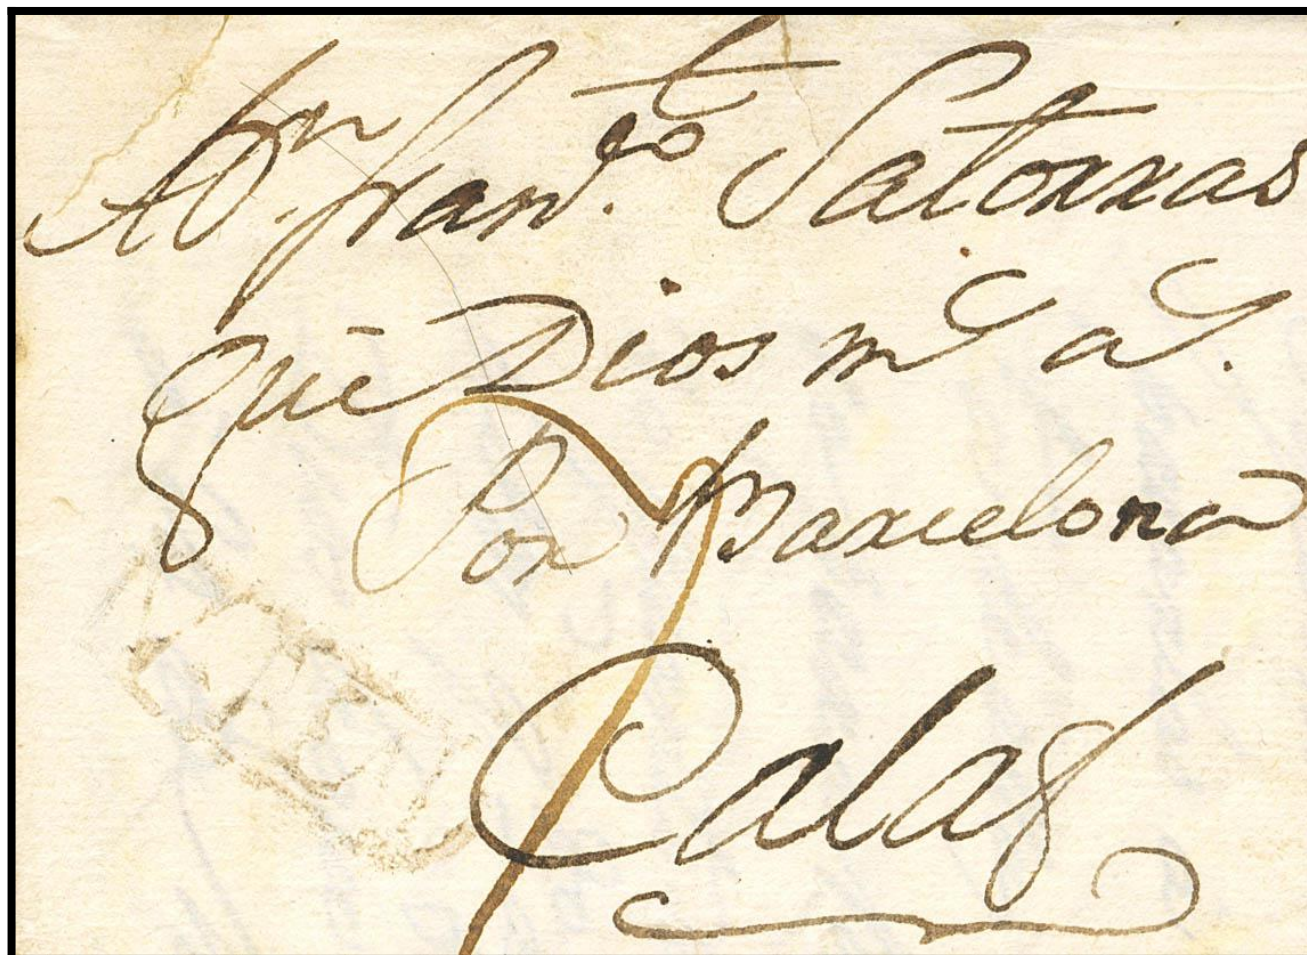 A Dn. Franco. Satorras
que Dios ms as.
Por Barcelona
Calaf